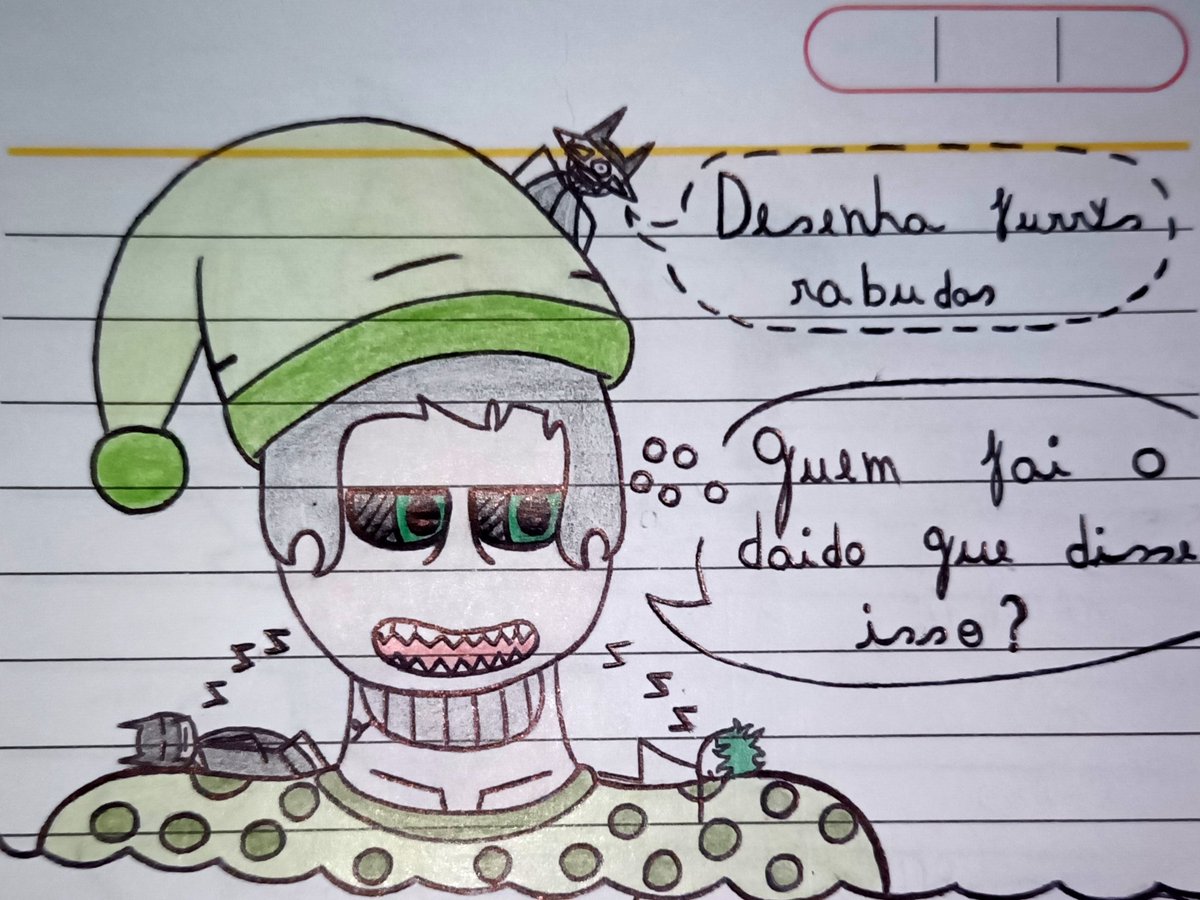 Desenha furrys
rabudas
Quem foi o
doido que disse
isso?
z
z
z
z
z
z